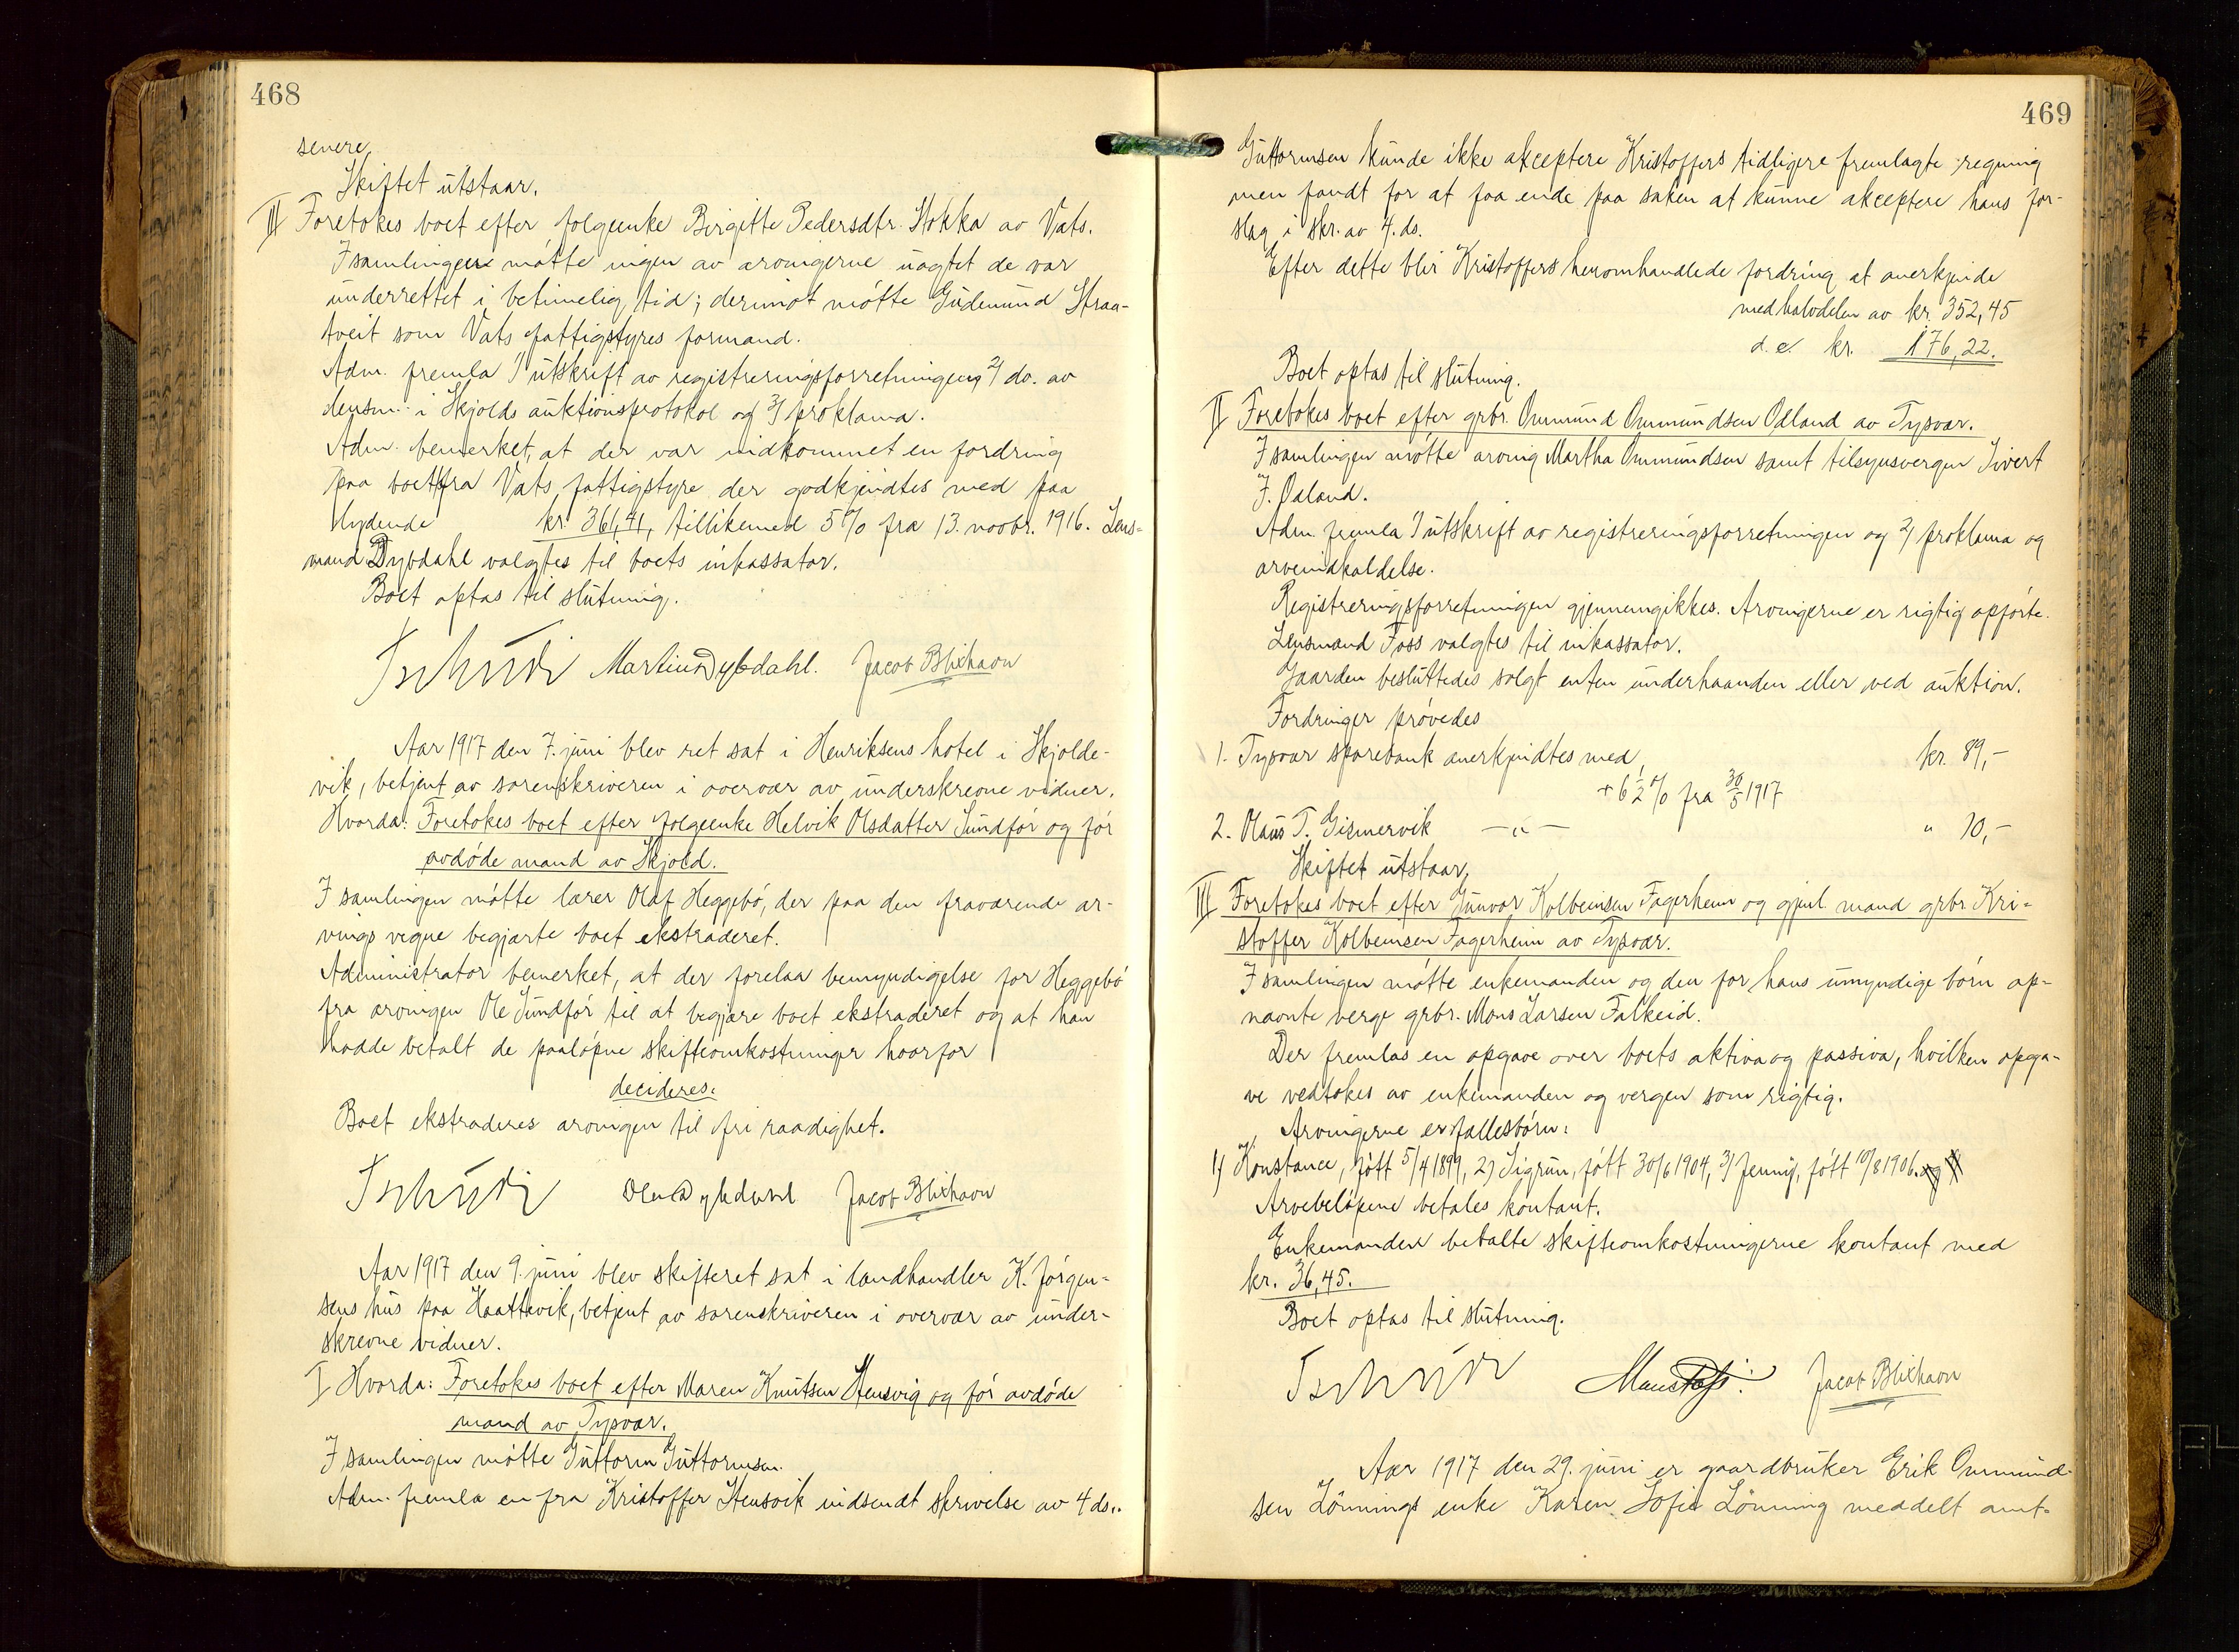 468
senere.
Skiftet utstaar.
III Foretokes boet efter folgeenke Birgitte Pedersdtr. Stokka av Vats.
I samlingen møtte ingen av arvingerne uagtet de var
underrettet i betimelig tid; derimot møtte Gudmund Straa-
tveit som Vats fattigstyres formand.
Adm. fremla 1/ utskrift av registreringsforretningen, 2/ do. av
lensm. i Skjolds auktionsprotokol og 3/ proklama.
Adm. bemerket, at der var indkommet en fordring
paa boet fra Vats fattigstyre der godkjendtes med paa
lydende kr. 361,41, tillikemed 5 % fra 13. novbr. 1916. Lens-
mand Dybdahl valgtes til boets inkassator.
Boet optas til slutning.
Tschudi Martin Dybdahl. Jacob Blixhavn
Aar 1917 den 7. juni blev ret sat i Henriksens hotel i Skjolde-
vik, betjent av sorenskriveren i overvær av underskrevne vidner.
Hvorda: Foretokes boet efter folgeenke Helvik Olsdatter Sundfør og før
avdøde mand av Skjold.
I samlingen møtte lærer Olaf Heggebø, der paa den fraværende ar-
vings vegne begjærte boet ekstraderet.
Administrator bemerket, at der forelaa bemyndigelse for Heggebø
fra arvingen Ole Sundfør til at begjære boet ekstraderet og at han
hadde betalt de paaløpne skifteomkostninger hvorfor
decideres:
Boet ekstraderes arvingen til fri raadighet.
Tschudi Ola Dybdahl Jacob Blixhavn
Aar 1917 den 9. juni blev skifteret sat i landhandler K. Jørgen-
sens hus paa Haattevik, betjent av sorenskriveren i overvær av under-
skrevne vidner.
I Hvorda: Foretokes boet efter Maren Knutsen Stensvig og før avdøde
mand av Tysvær.
I samlingen møtte Guttorm Guttormsen.
Adm. fremla en fra Kristoffer Stensvik indsendt skrivelse av 4 ds..
469
Guttormsen kunde ikke akceptere Kristoffers tidligere fremlagte regning
men fandt for at faa ende paa saken at kunne akceptere hans for-
slag i skr. av 4. ds.
Efter dette blir Kristoffers heromhandlede fordring at anerkjende
med halvdelen av kr. 352,45
d.e. kr. 176,22.
Boet optas til slutning.
II Foretokes boet efter grbr. Ommund Ommundsen Odland av Tysvær.
I samlingen møtte arving Martha Ommundsen samt tilsynsvergen Sivert
J. Odland.
Adm. fremla 1/ utskrift av registreringsforretningen og 2/ proklama og
arveindkaldelse.
Registreringsforretningen gjennemgikkes. Arvingerne er rigtig opførte.
Lensmand Foss valgtes til inkassator.
Gaarden besluttedes solgt enten underhaanden eller ved auktion.
Fordringer prøvedes
1. Tysvær sparebank anerkjendtes med kr. 89,-
+ 6 1/2 % fra 30/5 1917
2. Olaus T. Gismervik —"— " 10,-
Skiftet utstaar,
III Foretokes boet efter Gunvor Kolbeinsen Fagerheim og gjenl. mand grbr. Kri-
stoffer Kolbeinsen Fagerheim av Tysvær.
I samlingen møtte enkemanden og den for hans umyndige børn op-
nævnte verge grbr. Mons Larsen Falkeid.
Der fremlas en opgave over boets aktiva og passiva, hvilken opga-
ve vedtokes av enkemanden og vergen som rigtig.
Arvingerne er fællesbørn:
1) Konstance, født 5/4 1899, 2) Sigrun, født 30/6 1904, 3) Jenny, født 10/8 1906.
Arvebeløpene betales kontant.
Enkemanden betalte skifteomkostningerne kontant med
kr. 36,45.
Boet optas til slutning.
Tschudi Jacob Blixhavn
Aar 1917 den 29. juni er gaardbruker Erik Ommund-
sen Lønnings enke Karen Sofie Lønning meddelt amt-